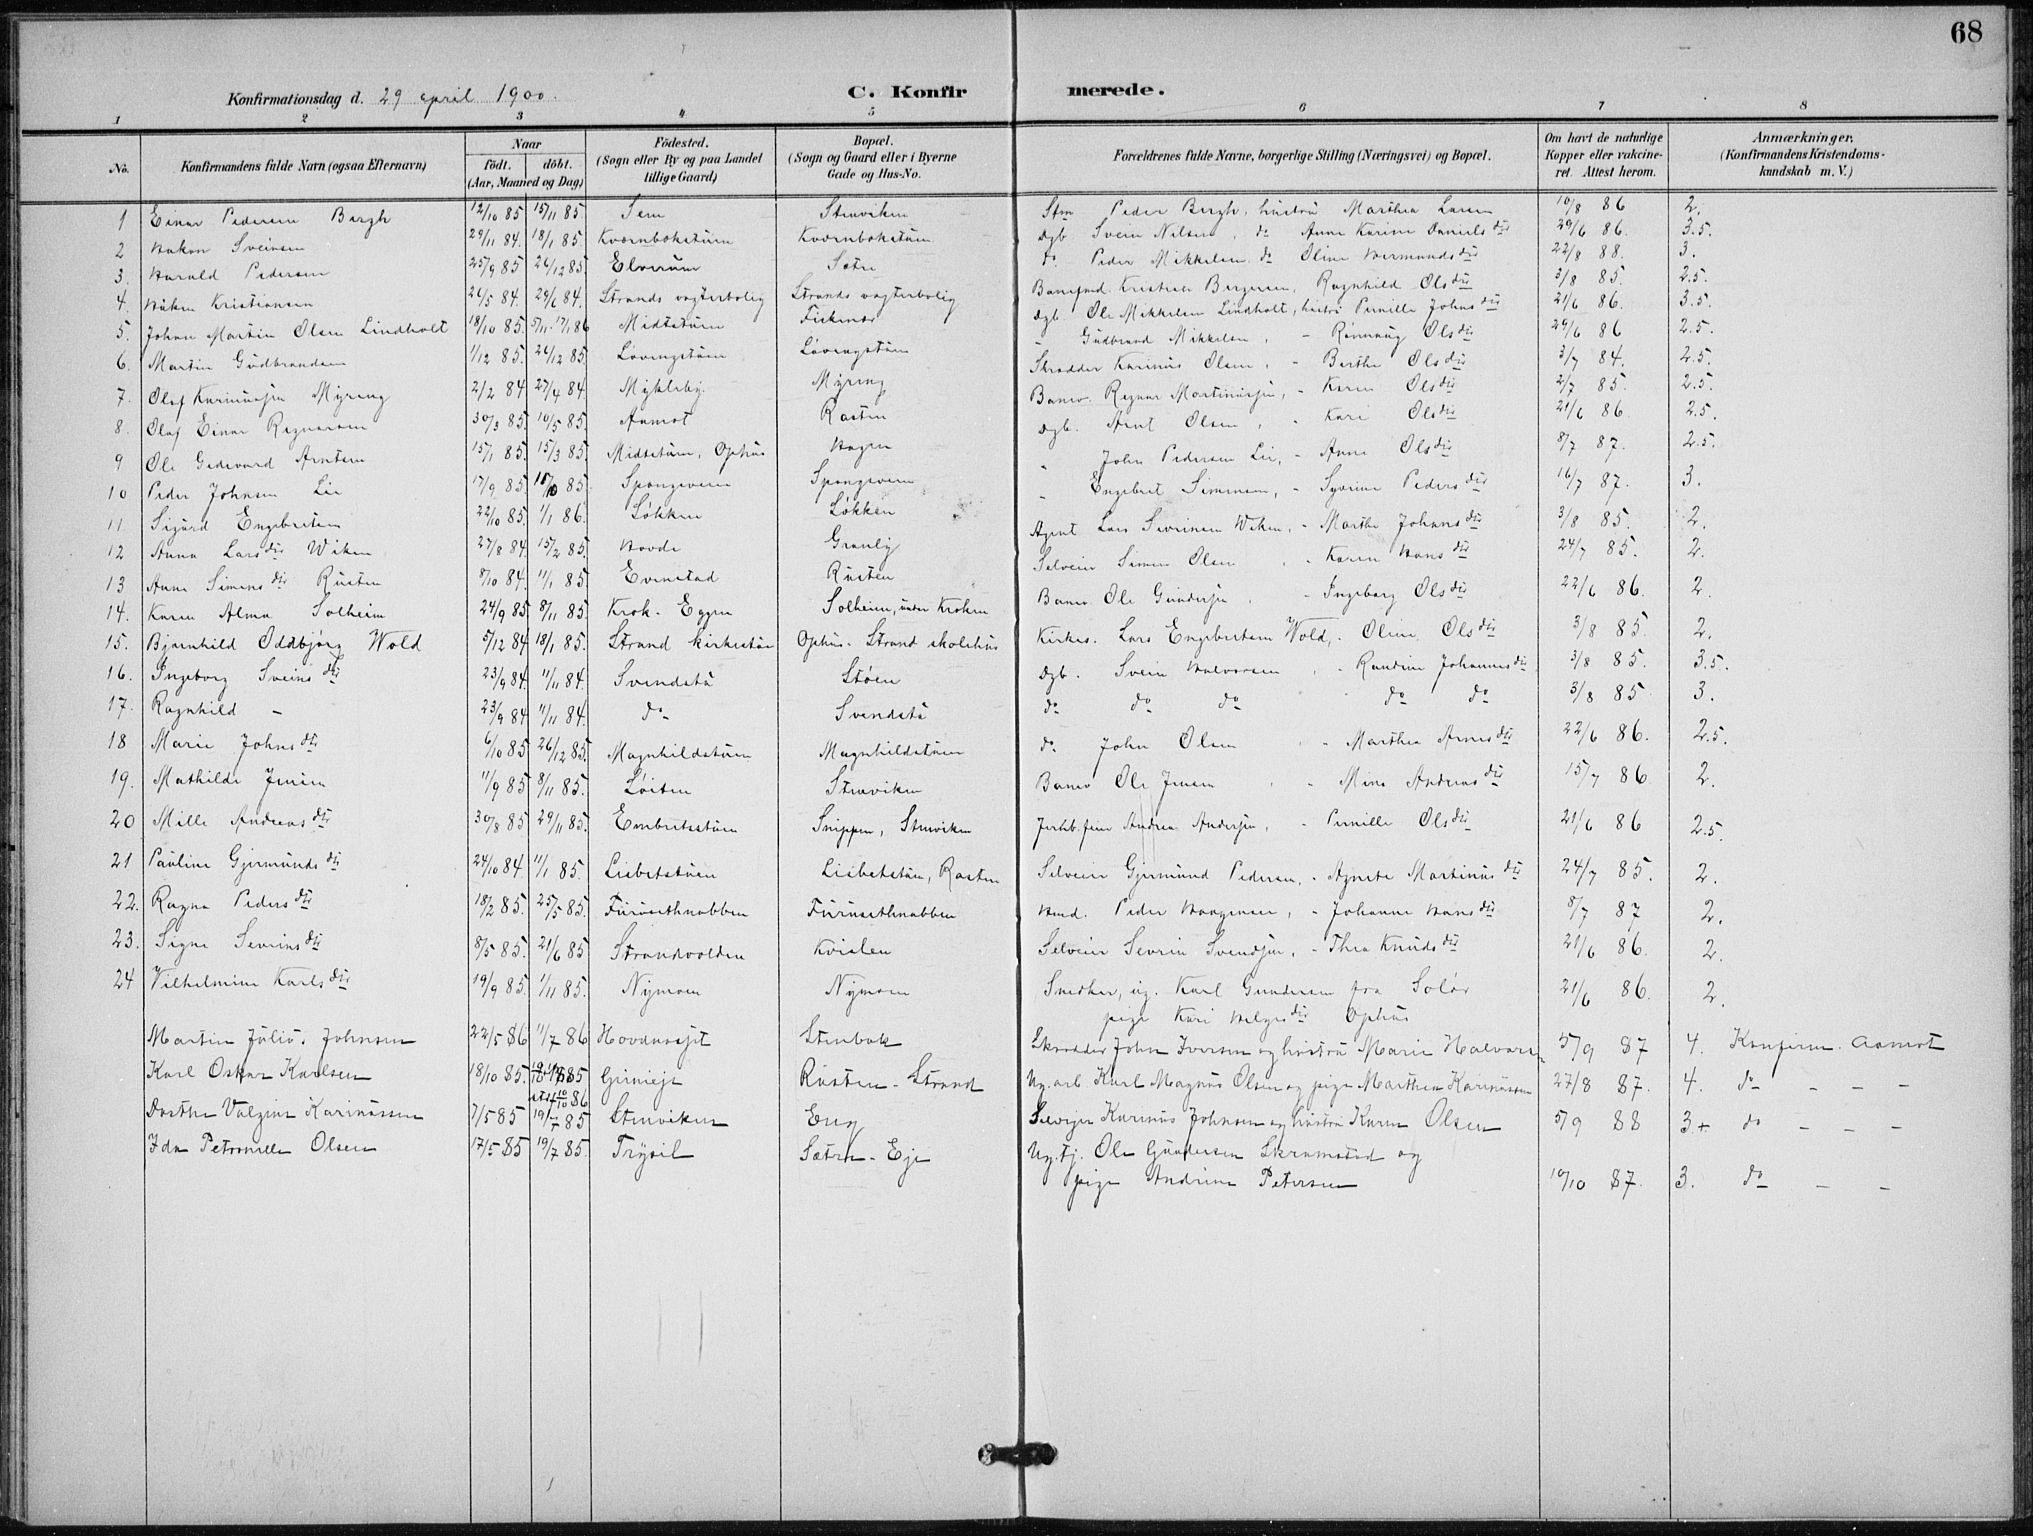 68
Konfirmationsdag d. 29 april 1900.
C. Konfirmerede.
1 2 3 4 5 6 7 8
No. Konfirmandens fulde Navn (ogsaa Efternavn) Naar født. døbt. (Aar, Maaned og Dag) Fødested. (Sogn eller By og paa Landet tillige Gaard) Bopæl. (Sogn og Gaard eller i Byerne Gade og Hus-No. Forældrenes fulde Navne, borgerlige Stilling (Næringsvei) og Bopæl. Om havt de naturlige Kopper eller vakcineret. Attest herom. Anmærkninger. (Konfirmandens Kristendomskundskab m. V.)
1 Einar Pedersen Bergh 12/10 85 15/11 85 Sem Stenviken Stm Peder Bergh, hustru Marthea Larsen 10/8 86 2.
2 Hakon Sveinsen 29/11 84. 18/1 85 Kvernbekstuen Kvernbekstuen Dgb Svein Nilsen, do Anne Karine Daniels dtr 29/6 86. 3.5.
3. Harald Pedersen 25/9 85 26/12 85 Elverum Sætre do. Peder Mikkelsen do Oline Hermunds dtr 22/8 88. 3.
4. Håken Kristiansen 26/5 84. 29/6 84. Strands vogterbolig Strands vogterbolig Banefmd. Kristian Bergersen, Ragnhild Ols dtr 3/8 85. 2.5.
5. Johan Martin Olsen Lindholt 18/10 85. 5/11 - 17/1 86 Midtstuen Fiskenes Dgb Ole Mikkelsen Lindholt, hustru Pernille Johns dtr 21/6 86. 3.5.
6. Martin Gudbrandsen 1/12 85. 26/12 85. Løvengstuen Løvengstuen - Gudbrand Mikkelsen, - Rønnaug Ols dtr 29/6 86 2.5.
7. Olaf Karinusen Myreng 2/2 84 27/4 84. Mykleby. Myreng Skrædder Karinus Olsen, - Berthe Ols dtr 3/7 84. 2.5.
8. Olaf Einar Regnarsen 30/3 85. 10/5 85. Aamot Rasten Banev. Regnar Martinusen, - Karen Ols dtr 2/7 85. 2.5.
9 Ole Gedevard Arntsen 15/1 85. 15/3 85. Midtstuen, Ophus Hagen Dgb. Arnt Olsen, - Kari Ols dtr 21/6 86. 2.5.
10 Peder Johnsen Lie 17/9 85 18/10 85. Spangsveen Spangsveen " John Pedersen Lie, - Anne Ols dtr 8/7 87. 2.5.
11 Sigurd Engebretsen 22/10 85. 1/1 86. Løkken Løkken - Engebret Simensen, - Syverine Peders dtr 16/7 87. 3.
12 Anna Lars dtr Wiken 27/8 84. 15/2 85. Hovde Granly Agent Lars Severinsen Wiken, - Marthe Johans dtr 3/8 85. 2.
13 Anne Simens dtr Rusten 8/10 84. 11/1 85. Evenstad Rusten Selveier Simen Olsen - Karen Hans dtr 24/7 85. 2.
14. Karen Alma Solheim 24/9 85. 8/11 85. Krok-Eggen Solheim, under Kroken Banev. Ole Gundersen, - Ingeborg Ols dtr 22/6 86. 2.
15. Bjarnhild Oddbjørg Wold 5/12 84 18/1 85. Strand kirkestue Ophus-Strand skolehus Kirkes. Lars Engebretsen Wold, - Oline Ols dtr 3/8 85. 2.
16. Ingeborg Sveins dtr 23/9 84. 11/11 84. Svendstu Støen Dgb. Svein Halvorsen - Randine Johannes dtr 3/8 85. 3.5.
17. Ragnhild - 23/9 84 11/11 84. do Svendstu do do do do do 3/8 85 3.
18 Marie Johns dtr 6/10 85 26/12 85. Magnhildstuen Magnhildstuen do John Olsen - Marthea Arnes dtr 22/6 86. 2.5.
19. Mathilde Jensen 11/9 85 8/11 85. Løiten Stenviken Banev Ole Jensen - Mina Andreas dtr 15/7 86 2.
20 Mille Andreas dtr 30/8 85 29/11 85. Embretsstuen Snippen, Stenviken Andreas Andersen, - Pernille Ols dtr 21/6 86 2.5.
21 Pauline Gjermunds dtr 24/10 84 11/1 85. Lisbetstuen Lisbetstuen, Rasten Selveier Gjermund Pedersen, - Agnete Martinus dtr 24/7 85. 2.
22. Ragna Peders dtr 18/2 85. 25/5 85. Furusethnabben Furusethnabben Hmd. Peder Haagensen, - Johanne Hans dtr 8/7 87 2.
23. Signe Severins dtr 8/5 85. 21/6 85 Strandvolden Kvislen Selveier Severin Svendsen, - Thea Knuds dtr 21/6 86. 2.
24 Vilhelmine Karls dtr 19/9 85. 1/11 85. Nymoen Nymoen Snedker, ug. Karl Gundersen fra Solør 21/6 86. 2.
pige Kari Helges dtr Ophus
Martin Julius Johnsen 22/5 86 11/7 86 Hovdmoejet Stenbak Skrædder John Iversen og hustru Marie Halvorsen 5/9 87 4. Konfirm. Aamot
Karl Oskar Karlsen 18/10 85. Grinieje Rusten-Strand Ug. arb. Karl Magnus Olsen og pige Marthea Karinussen 27/8 87. 4. do - - -
Dorthe Valgine Karinussen 7/5 85 19/7 85 Stenviken Eng Selveijer Karinus Johnsen og hustru Karen Olsen 5/9 88 3+ do - - -
Ida Petronelle Olsen 17/5 85 19/7 85. Trysil Sætre-Eje Ug. tj. Ole Gundersen Skramstad og
pige Andrine Petersen 19/10 87. 3. do - -